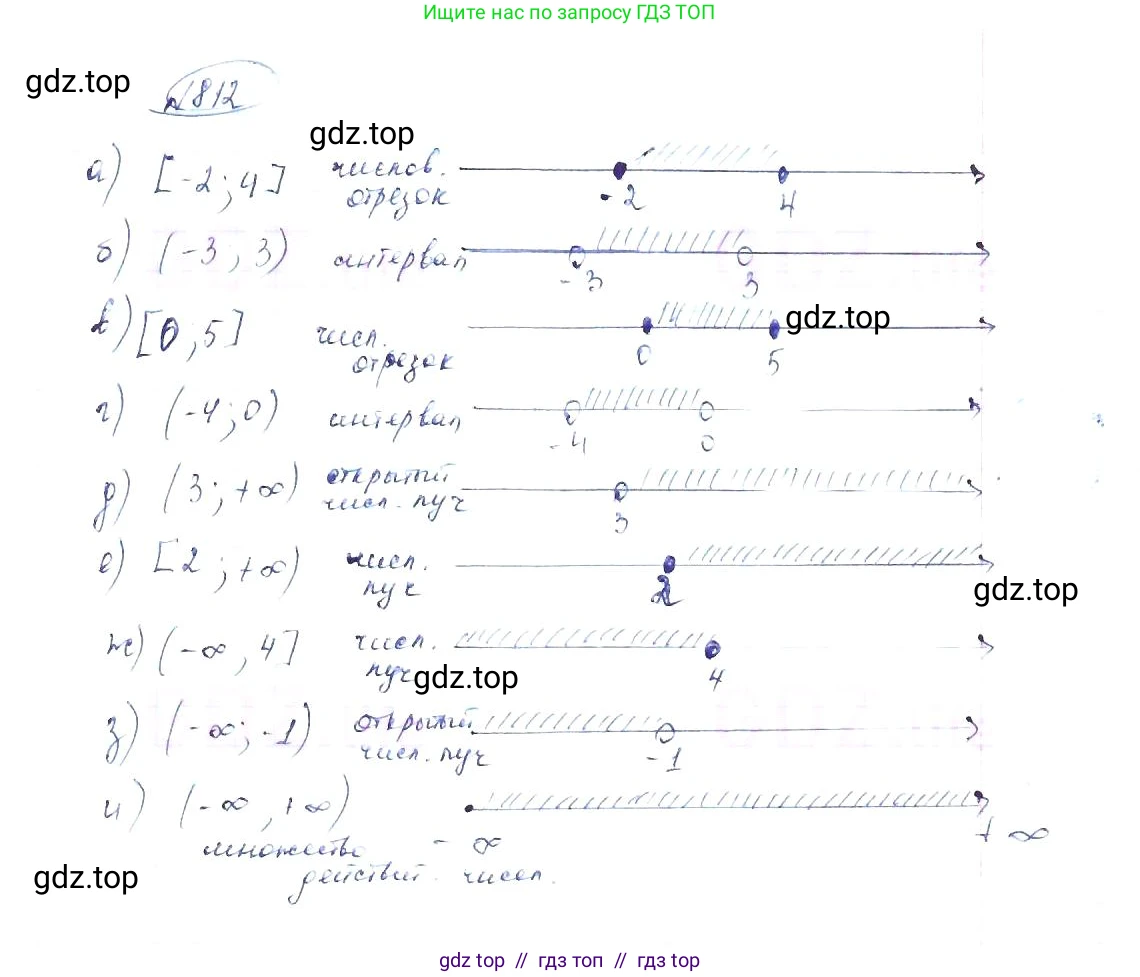 Ищите нас по запросу ГДЗ ТОП
gdz.top
№812
gdz.top
а) [-2; 4] числов. отрезок -2 4
б) (-3; 3) интервал -3 3
в) [0; 5] числ. отрезок 0 5
gdz.top
г) (-4; 0) интервал -4 0
д) (3; +∞) открытый числ. луч 3
е) [2; +∞) числ. луч 2
gdz.top
ж) (-∞, 4] числ. луч 4
gdz.top
з) (-∞; -1) открытый числ. луч -1
и) (-∞, +∞)
множество - ∞ + ∞
действит. чисел.
gdz.top
gdz top // гдз топ // гдз top